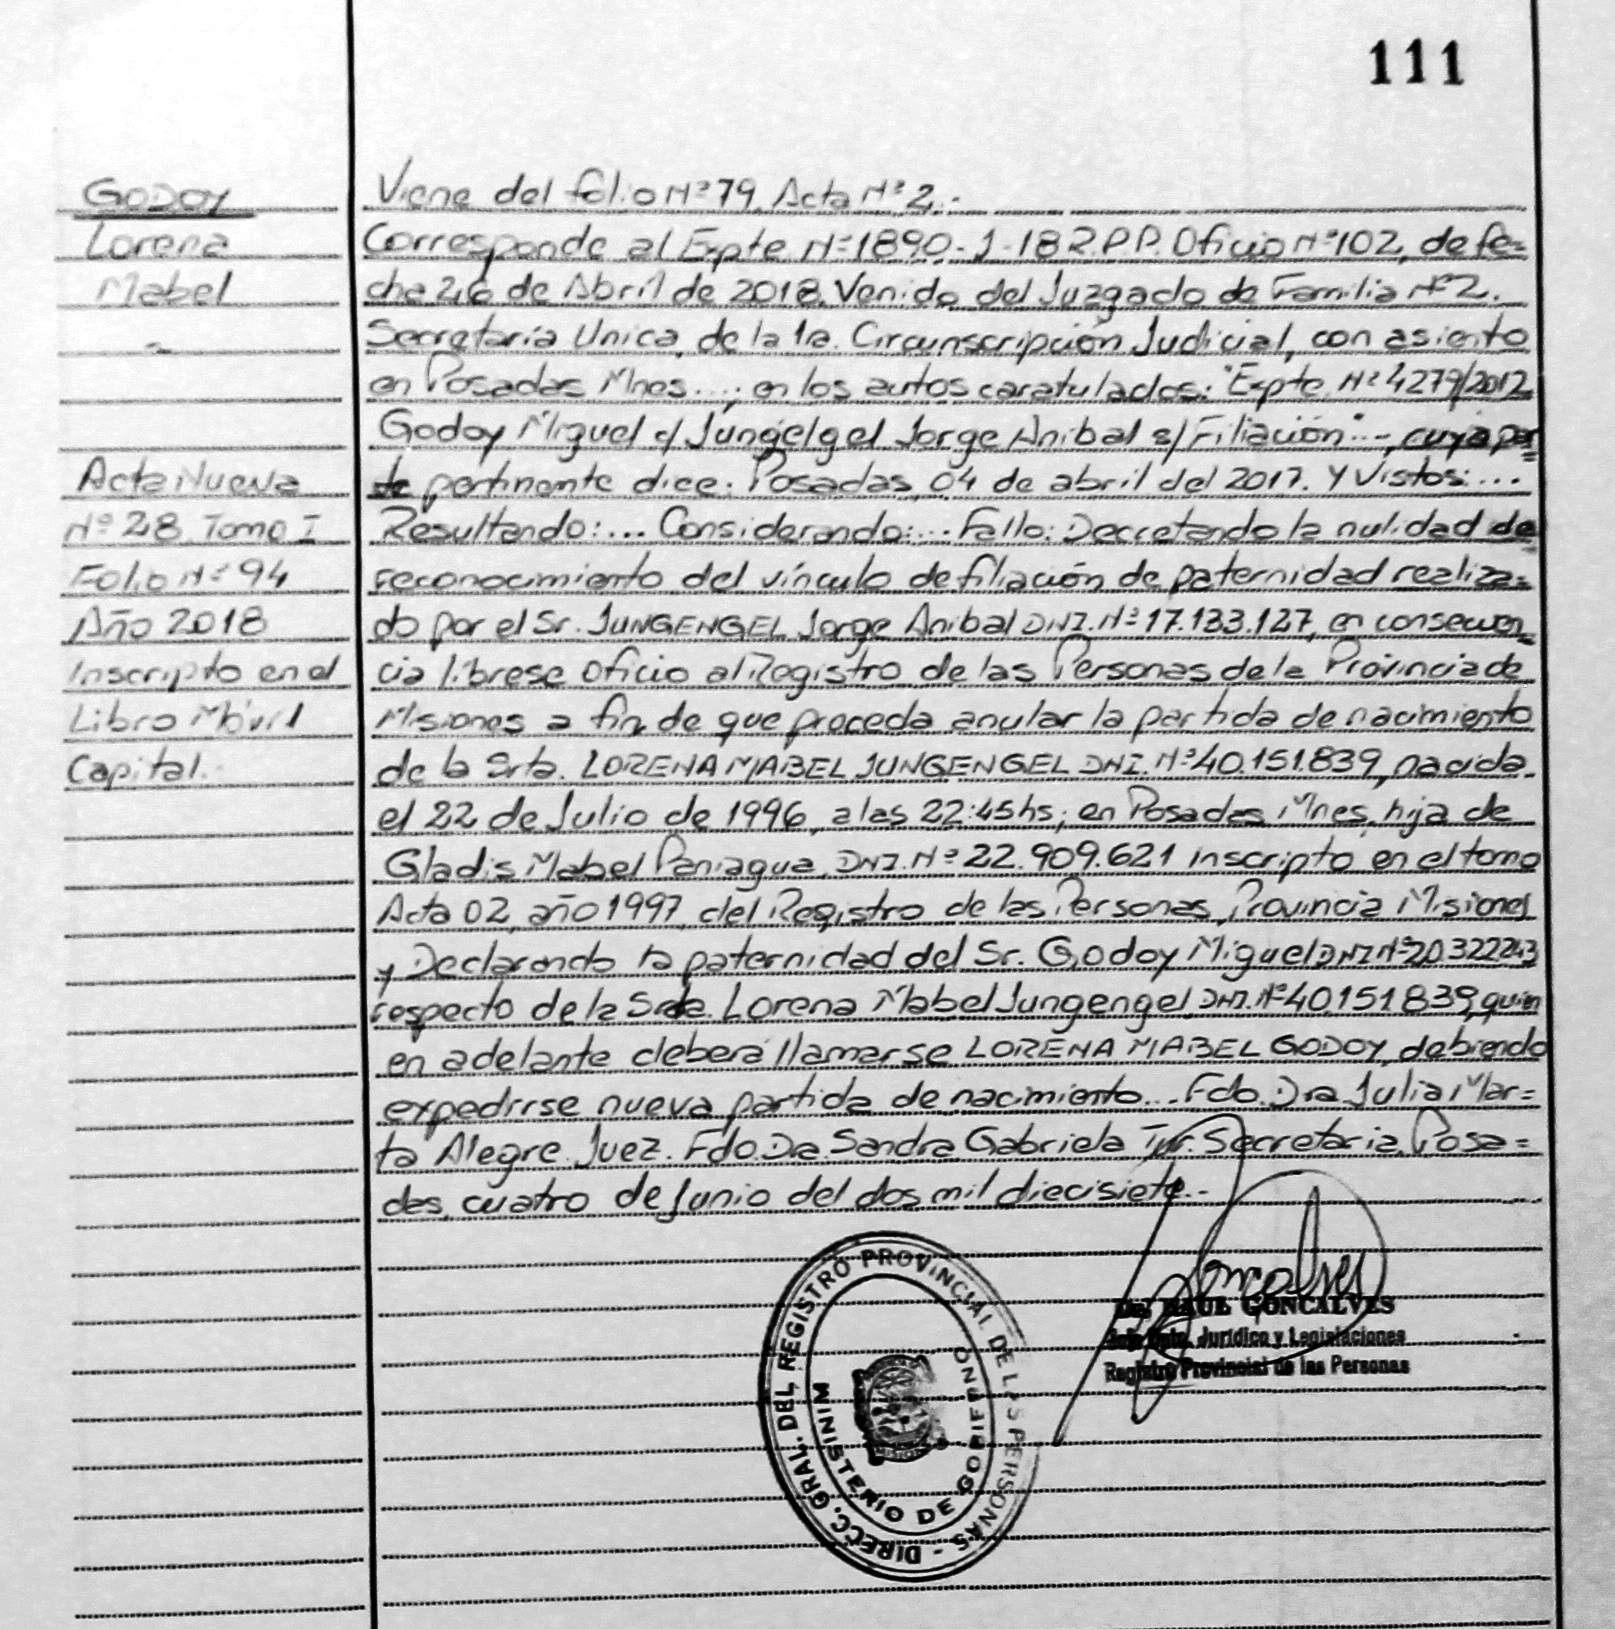 111
Godoy
Lorena
Mabel
Acta Nueva
Nº 28 Tomo I
Folio Nº 94
Año 2018
Inscripto en el
Libro Móvil
Capital.-
Viene del folio Nº 79, Acta Nº 2.-
Corresponde al Expte. Nº 1890-J-18 R.P.P. Oficio Nº 102, de fe=
cha 26 de Abril de 2018. Venido del Juzgado de Familia Nº 2.
Secretaría Unica, de la 1ra. Circunscripción Judicial, con asiento
en Posadas Mnes...; en los autos caratulados: "Expte. Nº 4279/2012
Godoy Miguel c/ Jungelgel Jorge Anibal s/ Filiación"..., cuya par=
te pertinente dice: Posadas, 04 de abril del 2017. Y Vistos:...
Resultando:... Considerando:... Fallo: Decretando la nulidad de
reconocimiento del vínculo de filiación de paternidad realiza=
do por el Sr. JUNGENGEL Jorge Anibal DNI. Nº 17.133.127, en consecuen=
cia líbrese oficio al Registro de las Personas de la Provincia de
Misiones a fin de que proceda anular la partida de nacimiento
de la Srta. LORENA MABEL JUNGENGEL DNI. Nº 40.151.839, nacida
el 22 de Julio de 1996, a las 22:45hs; en Posadas Mnes, hija de
Gladis Mabel Paniagua, DNI. Nº 22.909.621 inscripto en el tomo
Acta 02, año 1997, del Registro de las Personas, Provincia Misiones
y Declarando la paternidad del Sr. Godoy Miguel DNI Nº 20.322243
respecto de la Srta. Lorena Mabel Jungengel, DNI. Nº 40.151.839, quien
en adelante deberá llamarse LORENA MABEL GODOY, debiendo
expedirse nueva partida de nacimiento... Fdo. Dra Julia Mar=
ta Alegre. Juez. Fdo. Dra. Sandra Gabriela Secretaria. Posa=
das, cuatro de Junio del dos mil diecisiete.-
Goncalves
RAUL GONCALVES
Jurídico y Legislaciones
Registro Provincial de las Personas
DIRECC. GRAL. DEL REGISTRO PROVINCIAL DE LAS PERSONAS -
MINISTERIO DE GOBIERNO